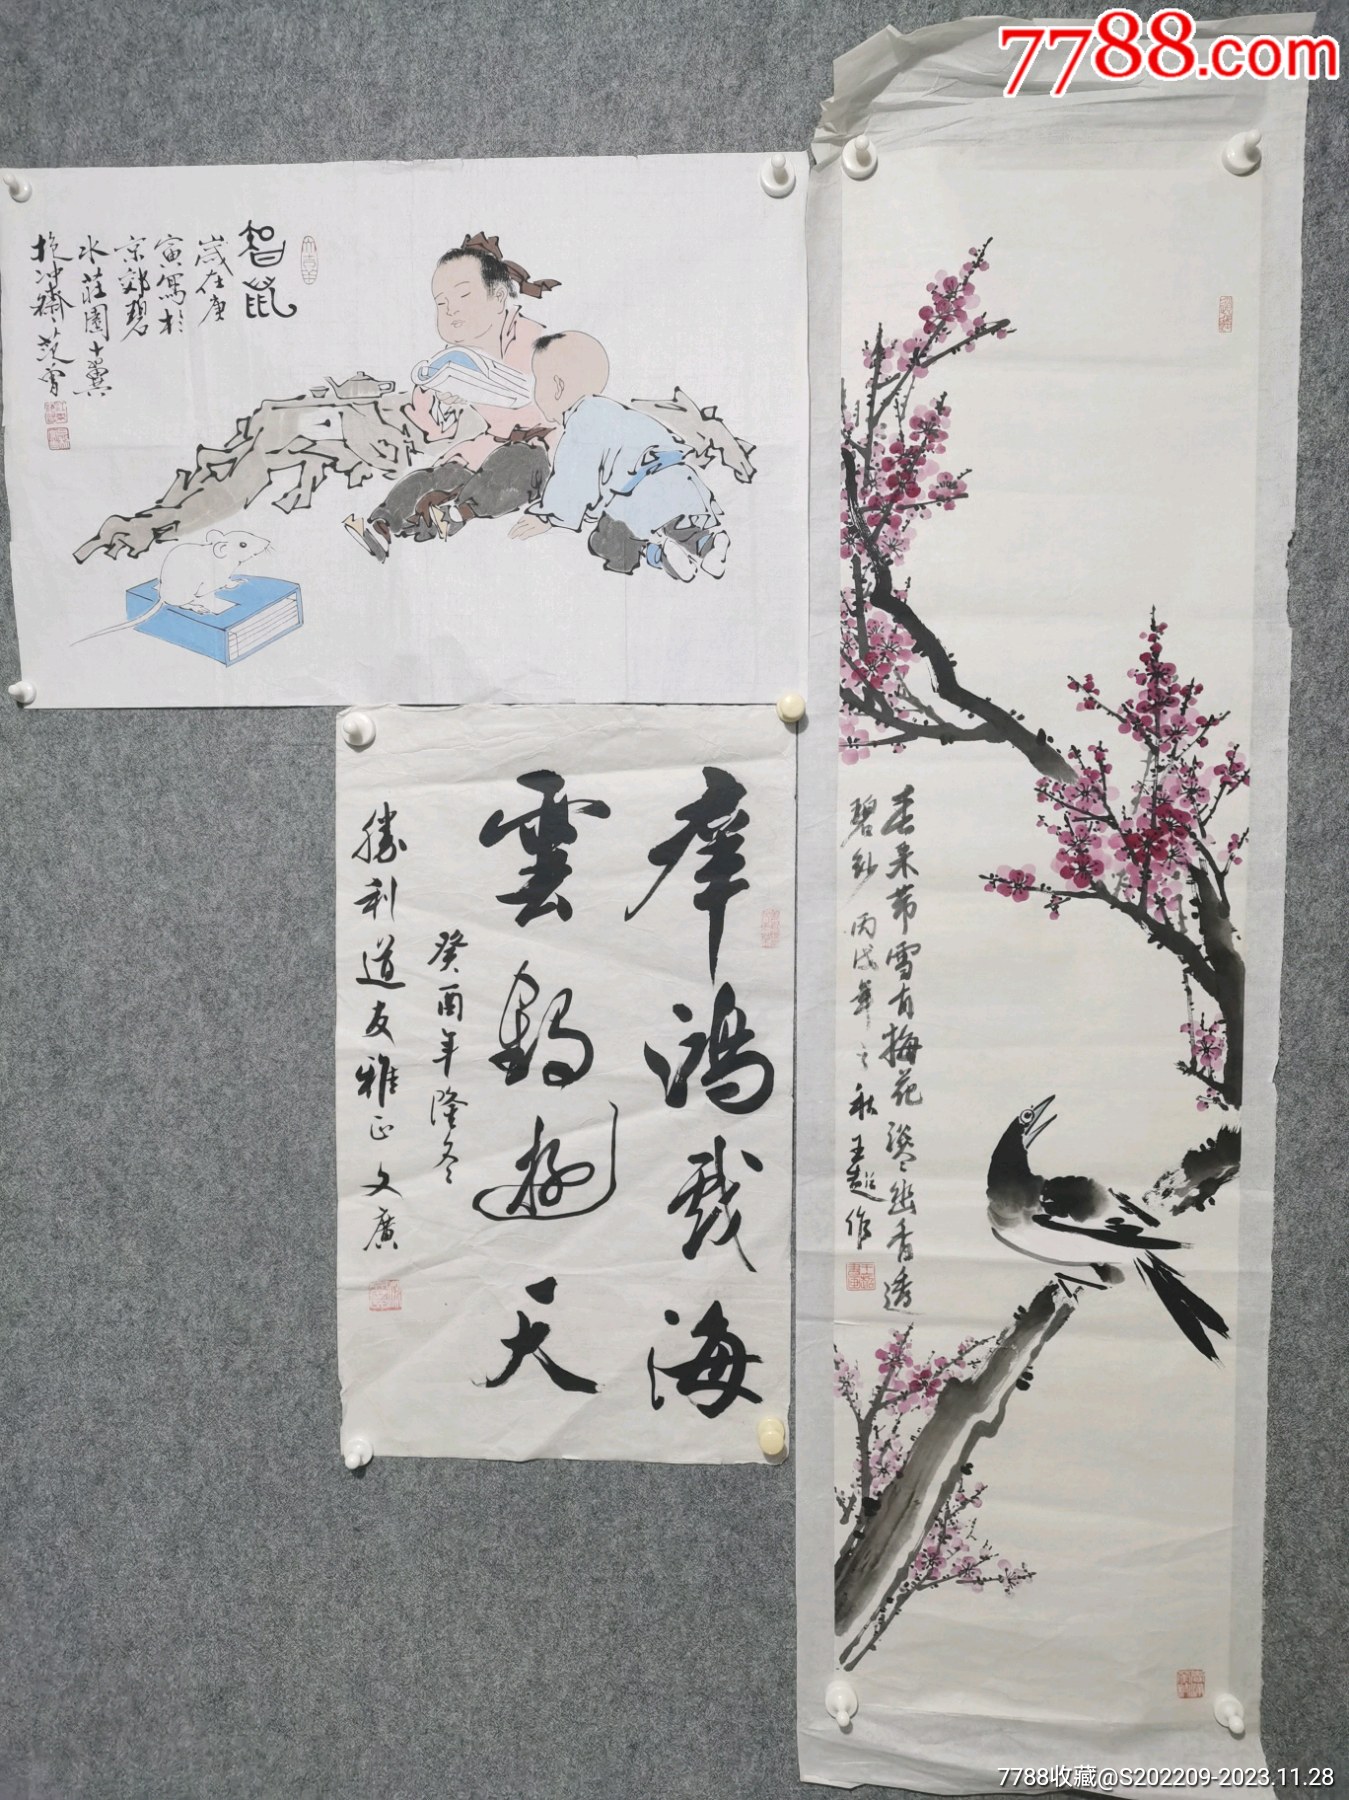 7788.com
智鼠
歲在庚
寅寫於
京郊碧
水莊園十翼
抱冲齋范曾
鴻戲海
雲鶴遊天
癸酉年隆冬
勝利道友雅正 文廣
春來帶雪有梅花 幽香透
碧紗 丙戌年之秋 王超作
7788收藏@S202209-2023.11.28